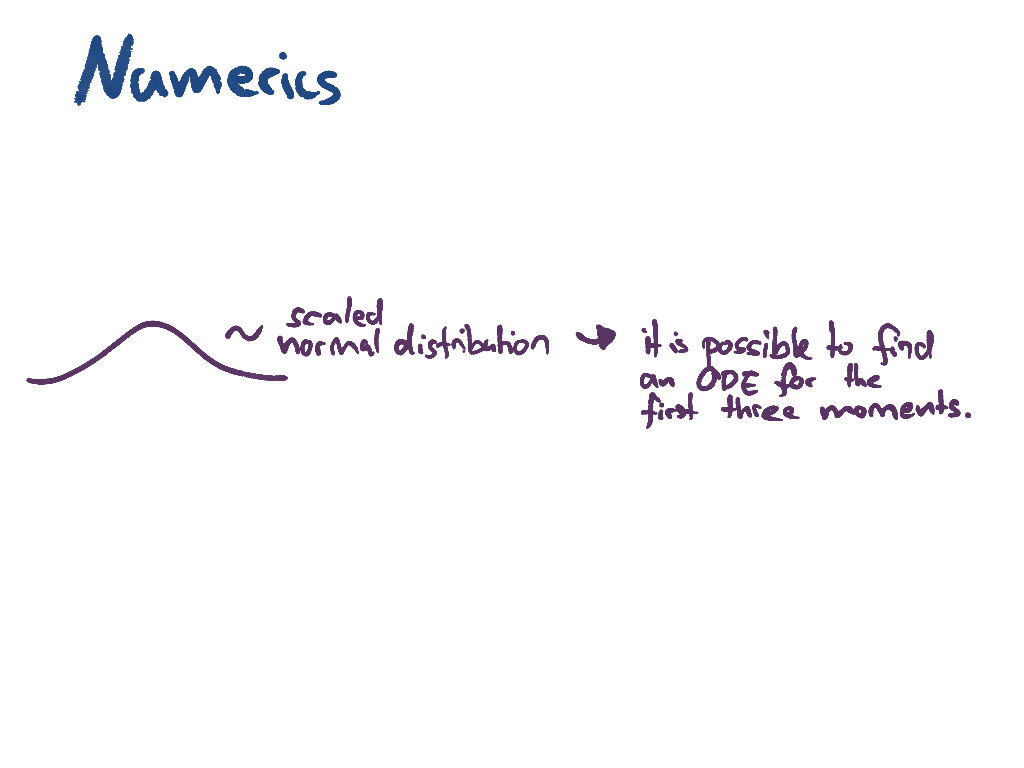 Numerics
~ scaled
normal distribution → it is possible to find
an ODE for the
first three moments.